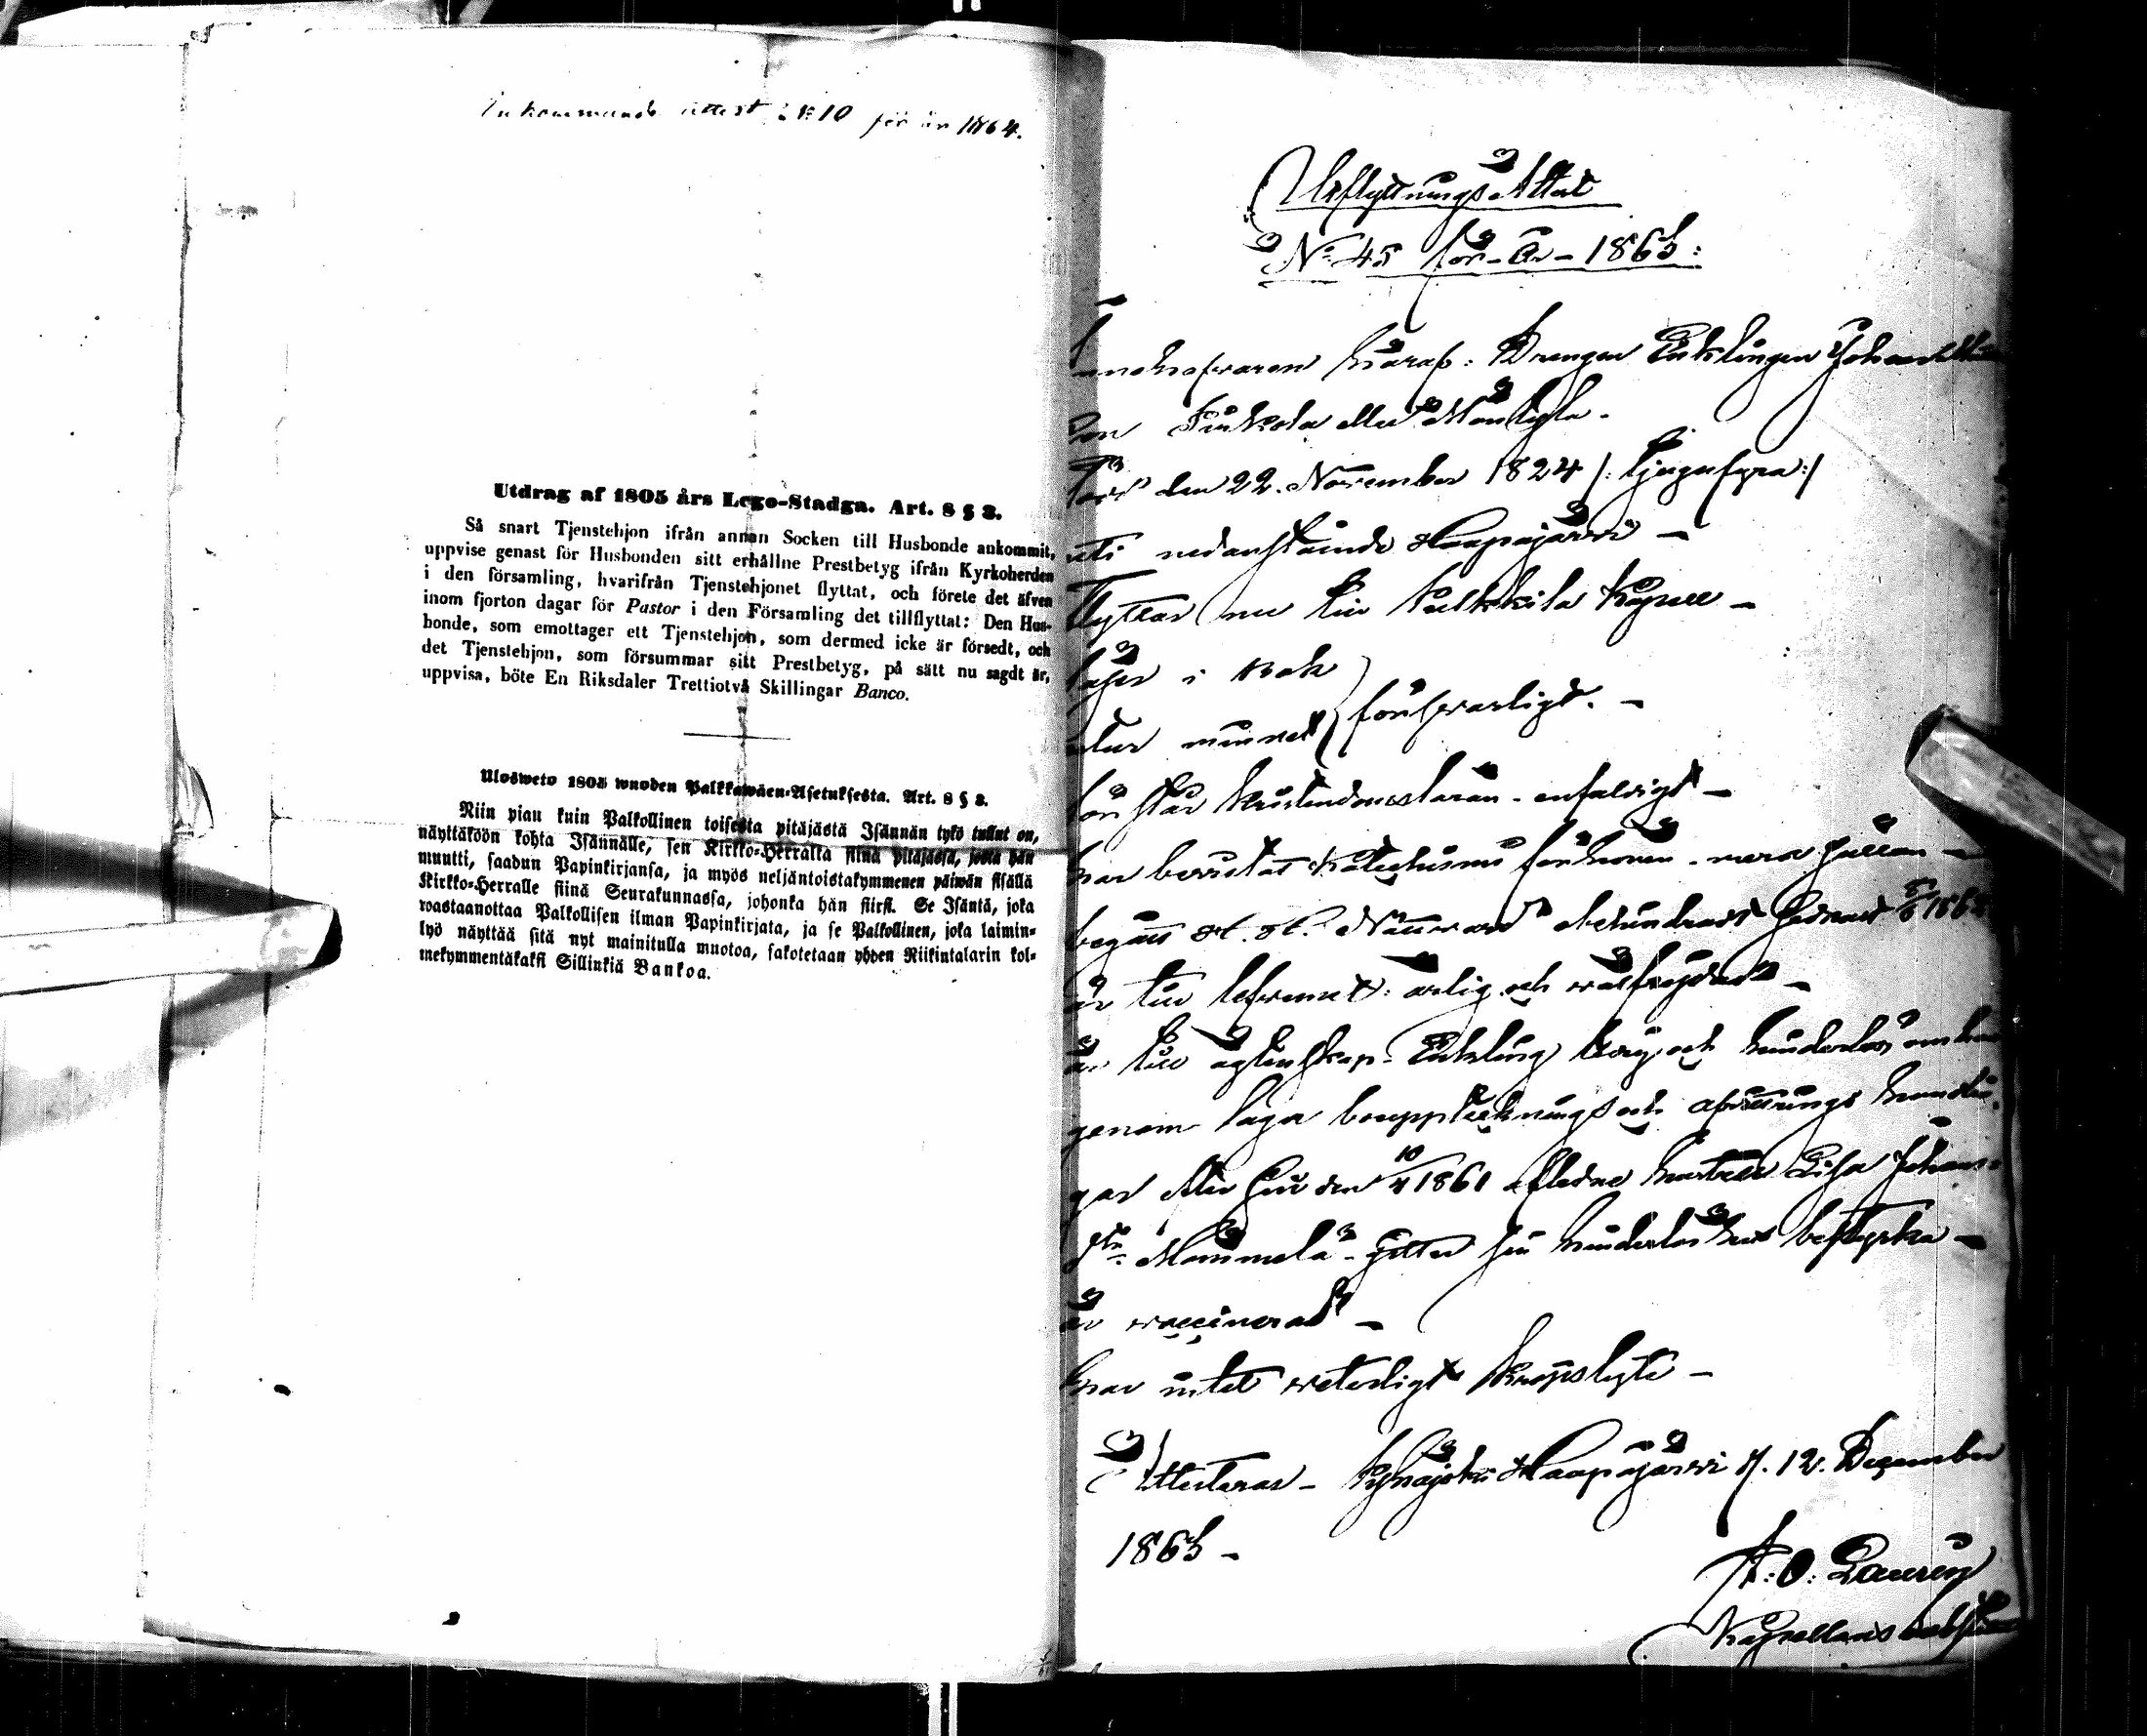 Inkommande attest № 10 för år 1864.
Utdrag af 1805 års Lego-Stadga. Art. 8 § 3.
Så snart Tjenstehjon ifrån annan Socken till Husbonde ankommit,
uppvise genast för Husbonden sitt erhållne Prestbetyg ifrån Kyrkoherden
i den församling, hvarifrån Tjenstehjonet flyttat, och förete det äfven
inom fjorton dagar för Pastor i den Församling det tillflyttat: Den Hus-
bonde, som emottager ett Tjenstehjon, som dermed icke är försedt, och
det Tjenstehjon, som försummar sitt Prestbetyg, på sätt nu sagdt är,
uppvisa, böte En Riksdaler Trettiotvå Skillingar Banco.
Ulosweto 1805 wuoden Palkkawäen-Asetuksesta. Art. 8 § 3.
Niin pian kuin Palkollinen toisesta pitäjästä Isännän tykö tullut on,
näyttäköön kohta Isännälle, sen Kirkko-Herralta siinä pitäjässä, josta hän
muutti, saadun Papinkirjansa, ja myös neljäntoistakymmenen päiwän sisällä
Kirkko-Herralle siinä Seurakunnassa, johonka hän siirsi. Se Isäntä, joka
wastaanottaa Palkollisen ilman Papinkirjata, ja se Palkollinen, joka laimin-
lyö näyttää sitä nyt mainitulla muotoa, sakotetaan yhden Riikintalarin kol-
mekymmentäkaksi Sillinkiä Bankoa.
Utflyttnings Attest
№ 45 för år 1863:
Drengen Enklingen Johan
son eller Mäntylä -
född den 22. November 1824 /: tjugufyra:/
uti nedanstående Haapajärwi -
Flyttar nu till Pulkkila Kapell -
läser i Bok
utur minnet } försvarligt. -
förstår Kristendomsläran - enfaldigt -
har bevistat Katechismi förhören -
begått H. H. Nattvard obehindradt sednast 1863
är till lefvernet: ärlig och välfrejdad -
är till ägtenskap - Enkling ledig och hinderlös
genom laga bouppteckning och afvittrings
gar efter sin den 10/4 1861 aflidne hustru Lisa Johans-
dtr Mommela - gitter sin hinderlöshet bestyrka -
är vaccinerad -
har intet veterligt kroppslyte -
Attesteras - Pyhäjoki Haapajärwi d. 12. December
1863 -
F: O: Laurin
Kapellans